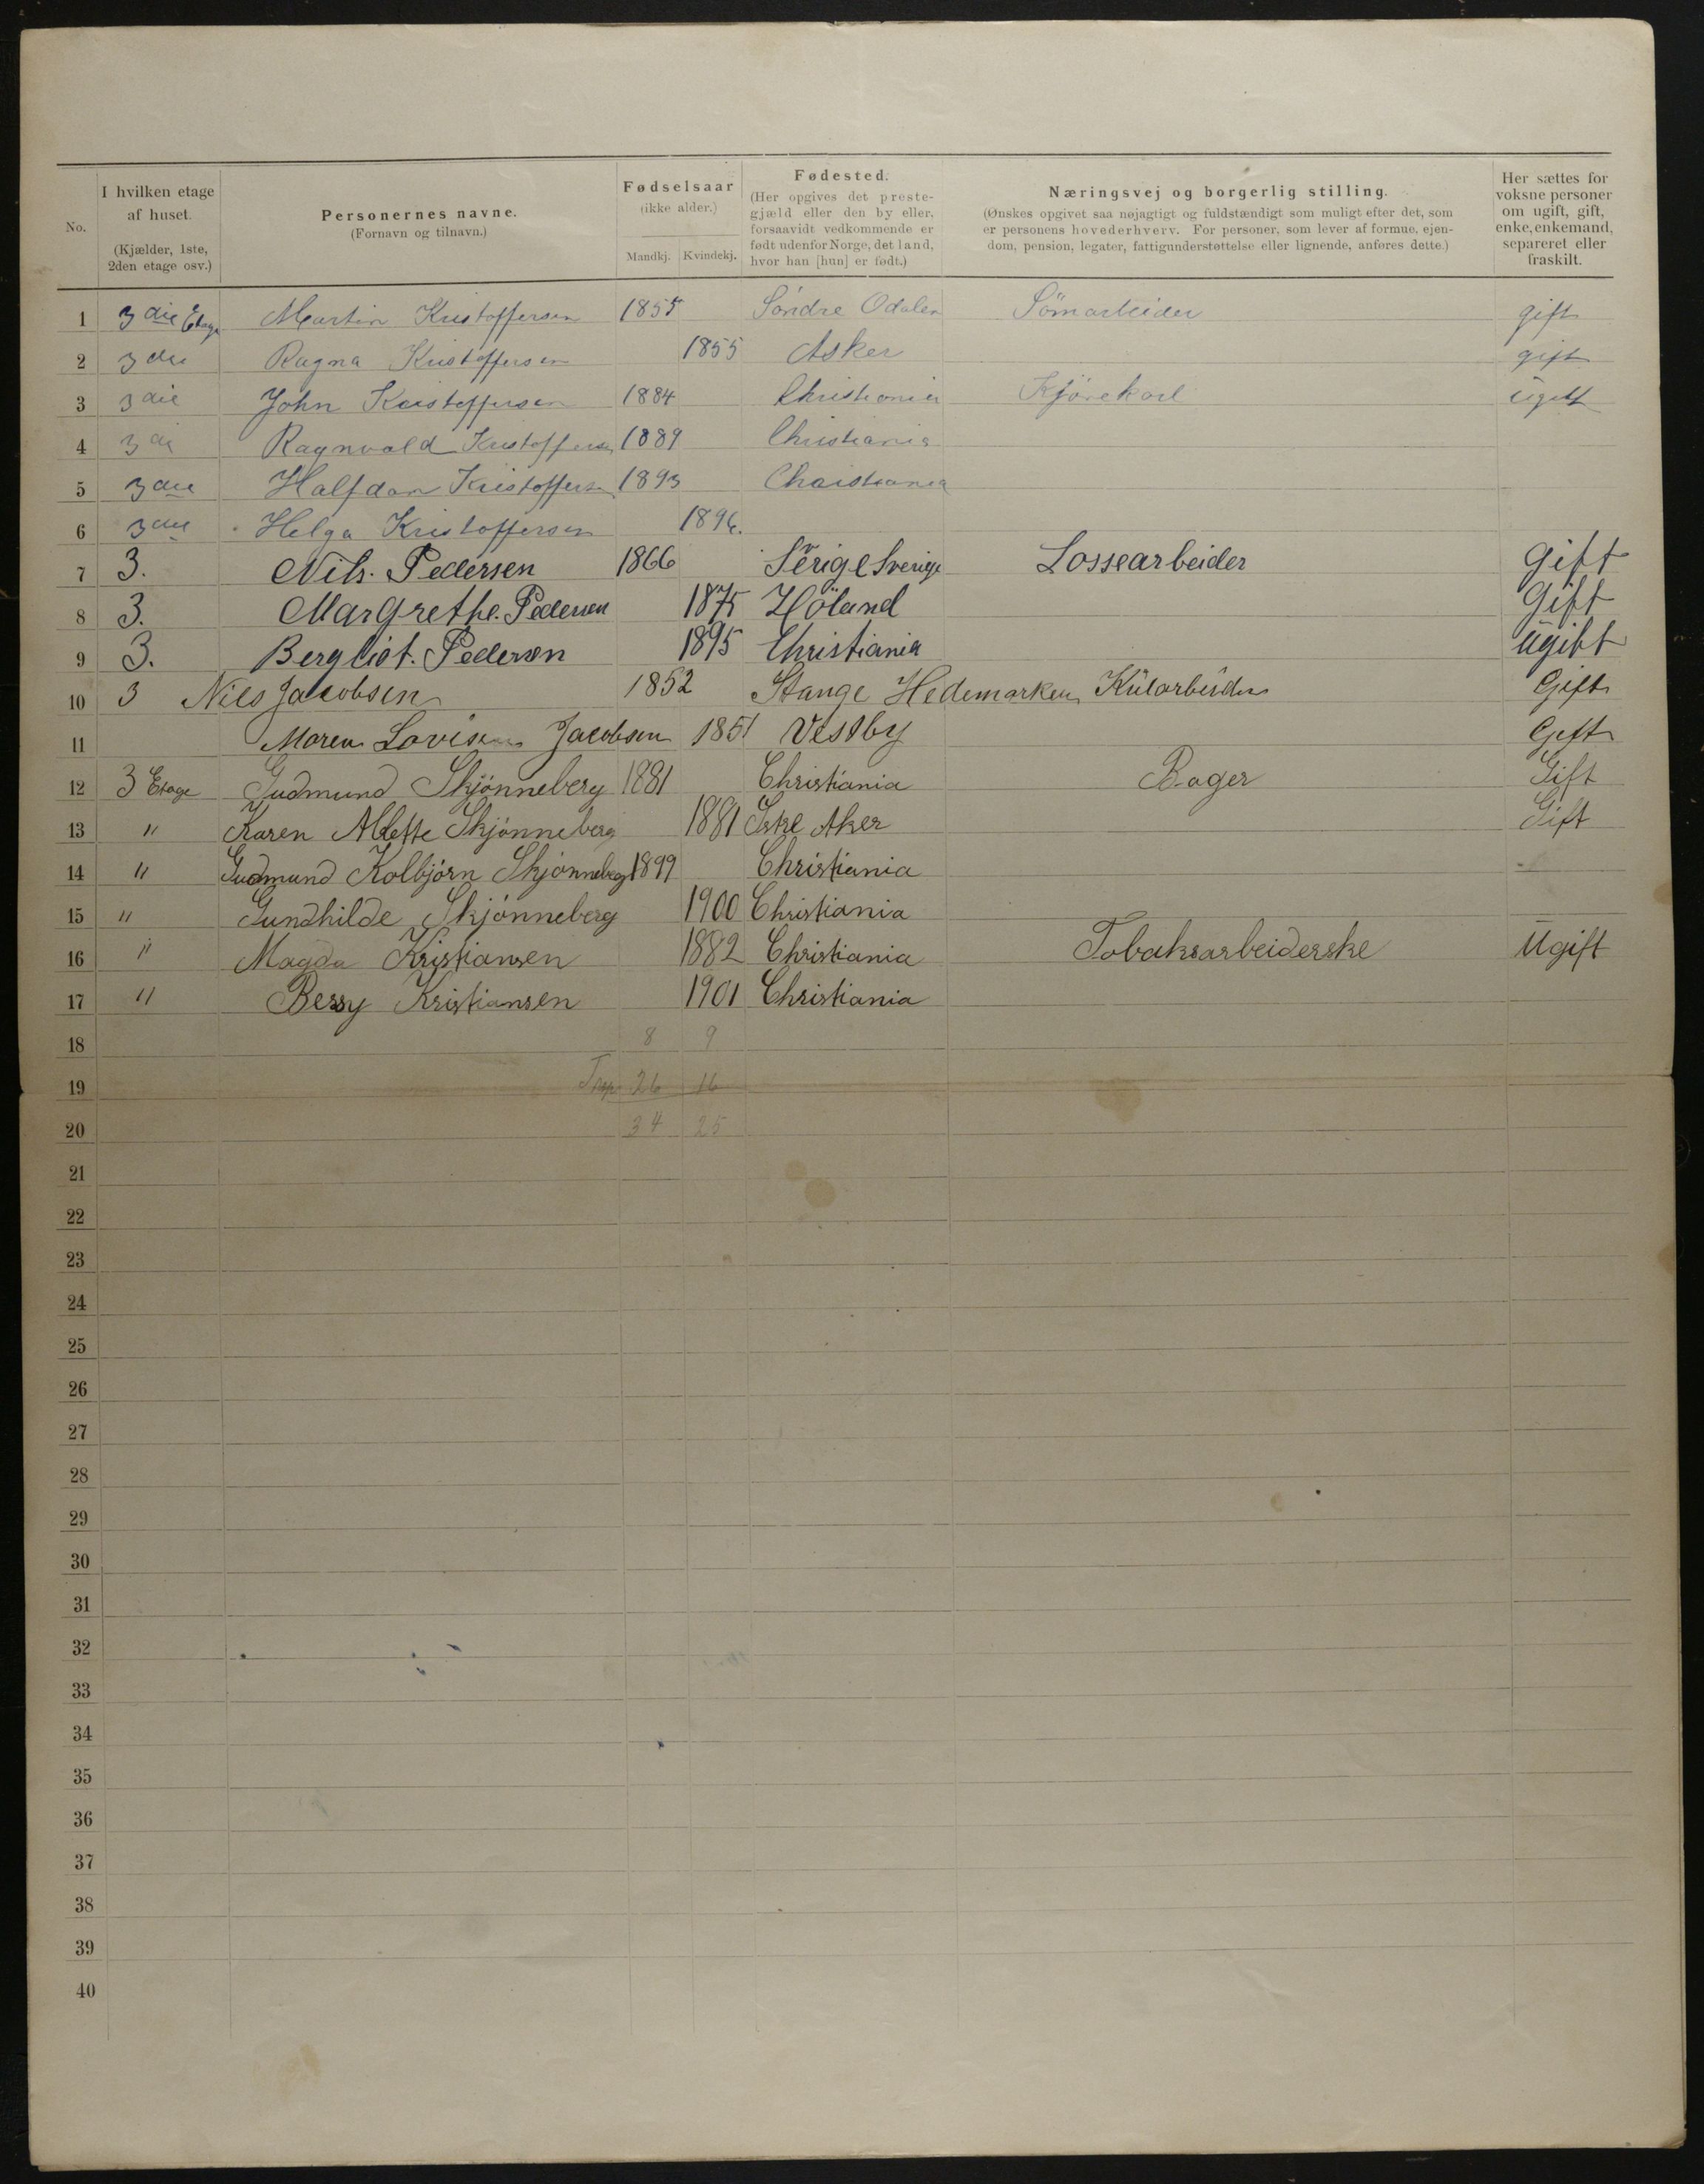 No.
I hvilken etage af huset. (Kjælder, 1ste, 2den etage osv.)
Personernes navne. (Fornavn og tilnavn.)
Fødselsaar (ikke alder.) Mandkj. Kvindekj.
Fødested. (Her opgives det prestegjæld eller den by eller, forsaavidt vedkommende er født udenfor Norge, det land, hvor han [hun] er født.)
Næringsvej og borgerlig stilling. (Ønskes opgivet saa nøjagtigt og fuldstændigt som muligt efter det, som er personens hovederhverv. For personer, som lever af formue, ejendom, pension, legater, fattigunderstøttelse eller lignende, anføres dette.)
Her sættes for voksne personer om ugift, gift, enke, enkemand, separeret eller fraskilt.
1 3die Etage Martin Kristoffersen 1855 Söndre Odalen Sömarbeider gift
2 3die Ragna Kristoffersen 1855 Asker gift
3 3die John Kristoffersen 1884 Christiania Kjörekarl ugift
4 3di Ragnvald Kristoffersen 1889 Christiania
5 3die Halfdan Kristoffersen 1893 Christiania
6 3die Helga Kristoffersen 1896.
7 3. Nils. Pedersen 1866 Sverige Lossearbeider Gift
8 3. Margrethe. Pedersen 1875 Höland Gift
9 3. Bergliot. Pedersen 1895 Christiania Ugift
10 3 Nils Jacobsen 1852 Stange Hedemarken Külarbeider Gift
11 Maren Lovise Jacobsen 1851 Vestby Gift
12 3 Etage Gudmund Skjönneberg 1881 Christiania Bager Gift
13 " Karen Alette Skjönneberg 1881 Østre Aker Gift
14 " Gudmund Kolbjörn Skjönneberg 1899 Christiania -
15 " Gundhilde Skjönneberg 1900 Christiania
16 " Magda Kristiansen 1882 Christiania Tobaksarbeiderske Ugift
17 " Bessy Kristiansen 1901 Christiania
18 8 9
19 Trsp. 26 16
20 34 25
21
22
23
24
25
26
27
28
29
30
31
32
33
34
35
36
37
38
39
40